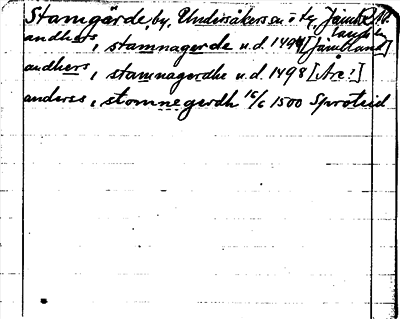 Stamgärde, by, Undersåkers sn o tg, Jämtl
andhers, stamnagerde u.d. 1494 [Jämtland]
andhers, stamnagerdhe u.d. 1498 [Åre!]
anderss, stamnegerdh 15/6 1500 Sproteid